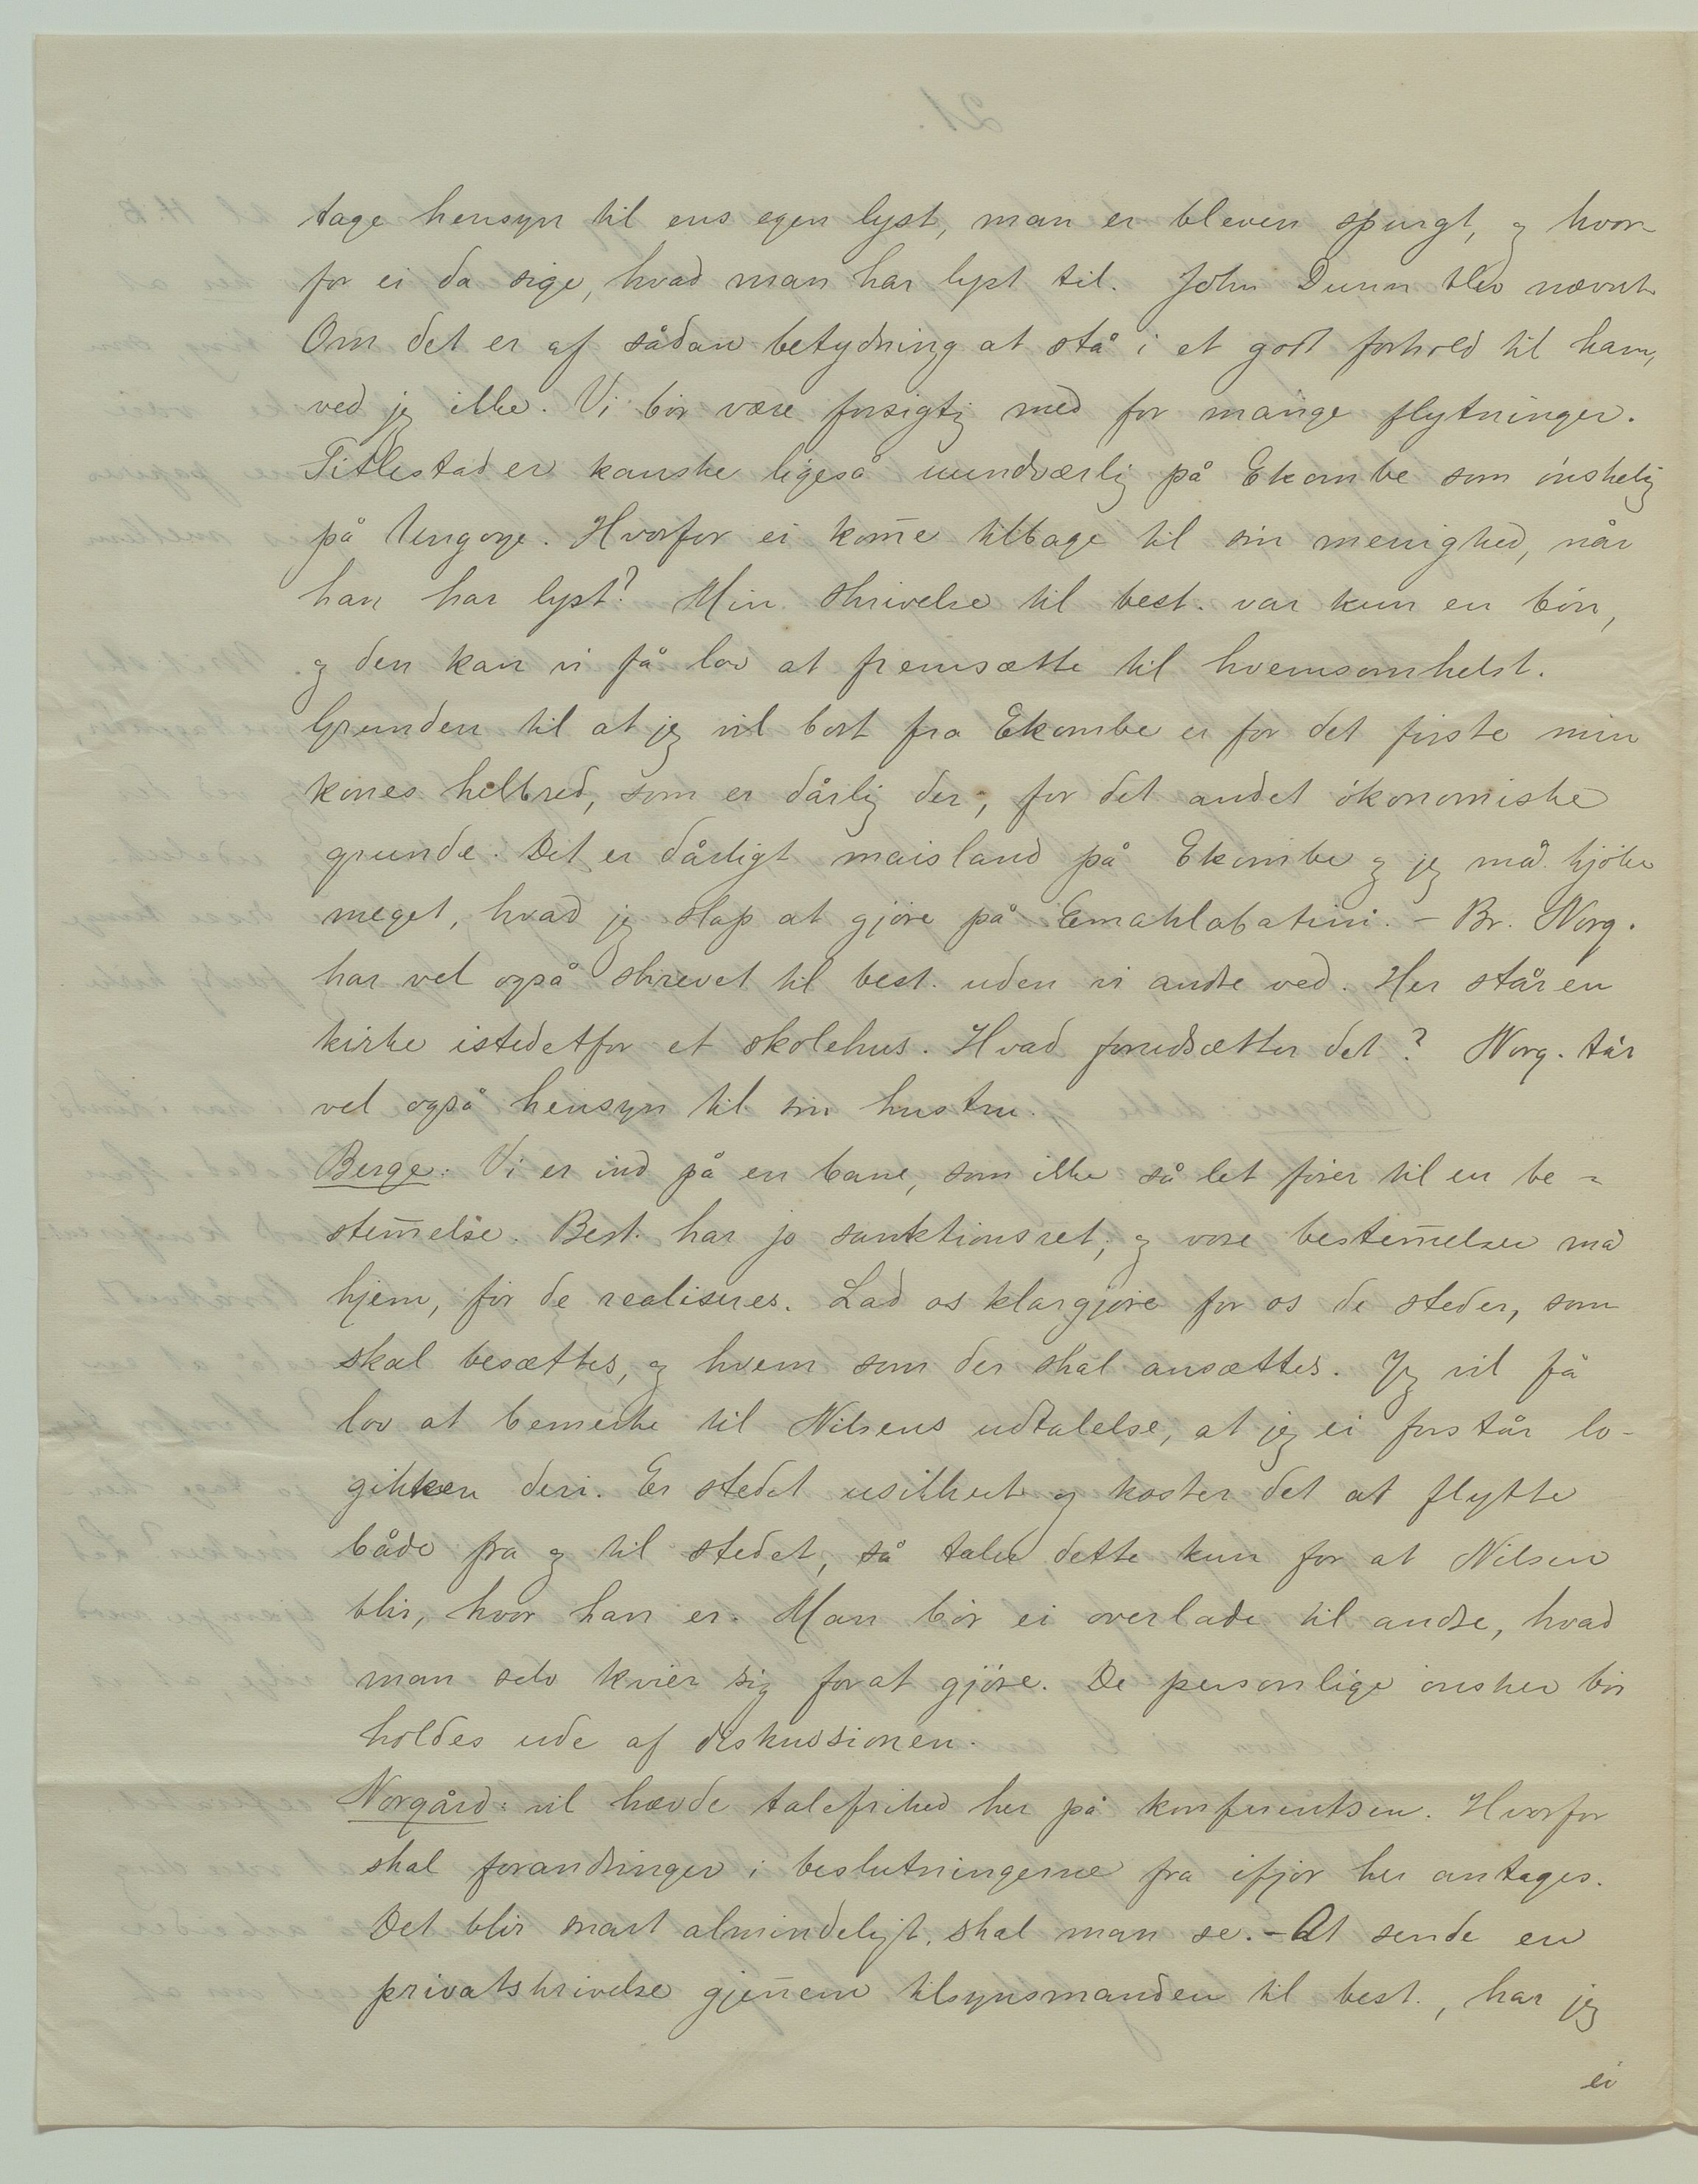 tage hensyn til ens egen lyst, man er bleven spurgt, og hvor-
for ei da sige, hvad man har lyst til. John Dunn blev nævnt.
Om det er af sådan betydning at stå i et godt forhold til ham,
ved jeg ikke. Vi bör være forsigtig med for mange flytninger.
Titlestad er kanske ligeså uundværlig på Ekombe som önskelig
på Ungoye. Hvorfor ei kom̄e tilbage til sin menighed, når
han har lyst? Min skrivelse til best. var kun en bön,
og den kan vi få lov at fremsætte til hvemsomhelst.
Grunden til at jeg vil bort fra Ekombe er for det förste min
kones helbred, som er dårlig der, for det andet ökonomiske
grunde. Det er dårligt maisland på Ekombe og jeg må kjöbe
meget, hvad jeg slap at gjöre på Emahlabatini. - Br. Norg.
har vel også skrevet til best. uden vi andre ved. Her står en
kirke istedetfor et skolehus. Hvad forudsætter det? Norg. tår
vel også hensyn til sin hustru.
Berge: Vi er ind på en bane, som ikke så let förer til en be-
stem̄else. Best. har jo sanktionsret, og vore bestem̄elser må
hjem, för de realiseres. Lad os klargjöre for os de steder, som
skal besættes, og hvem som der skal ansættes. Jeg vil få
lov at bemerke til Nilsens udtalelse, at jeg ei forstår lo-
gikken deri. Er stedet usikkert og koster det at flytte
både fra og til stedet, så taler dette kun for at Nilsen
blir, hvor han er. Man bör ei overlade til andre, hvad
man selv kvier sig for at gjöre. De personlige önsker bör
holdes ude af diskussionen.
Norgård: vil hævde talefrihed her på konferentsen. Hvorfor
skal forandringer i beslutningerne fra ifjor her antages.
Det blir snart almindeligt, skal man se. - At sende en
privatskrivelse gjen̄em tilsynsmanden til best., har jeg
ei